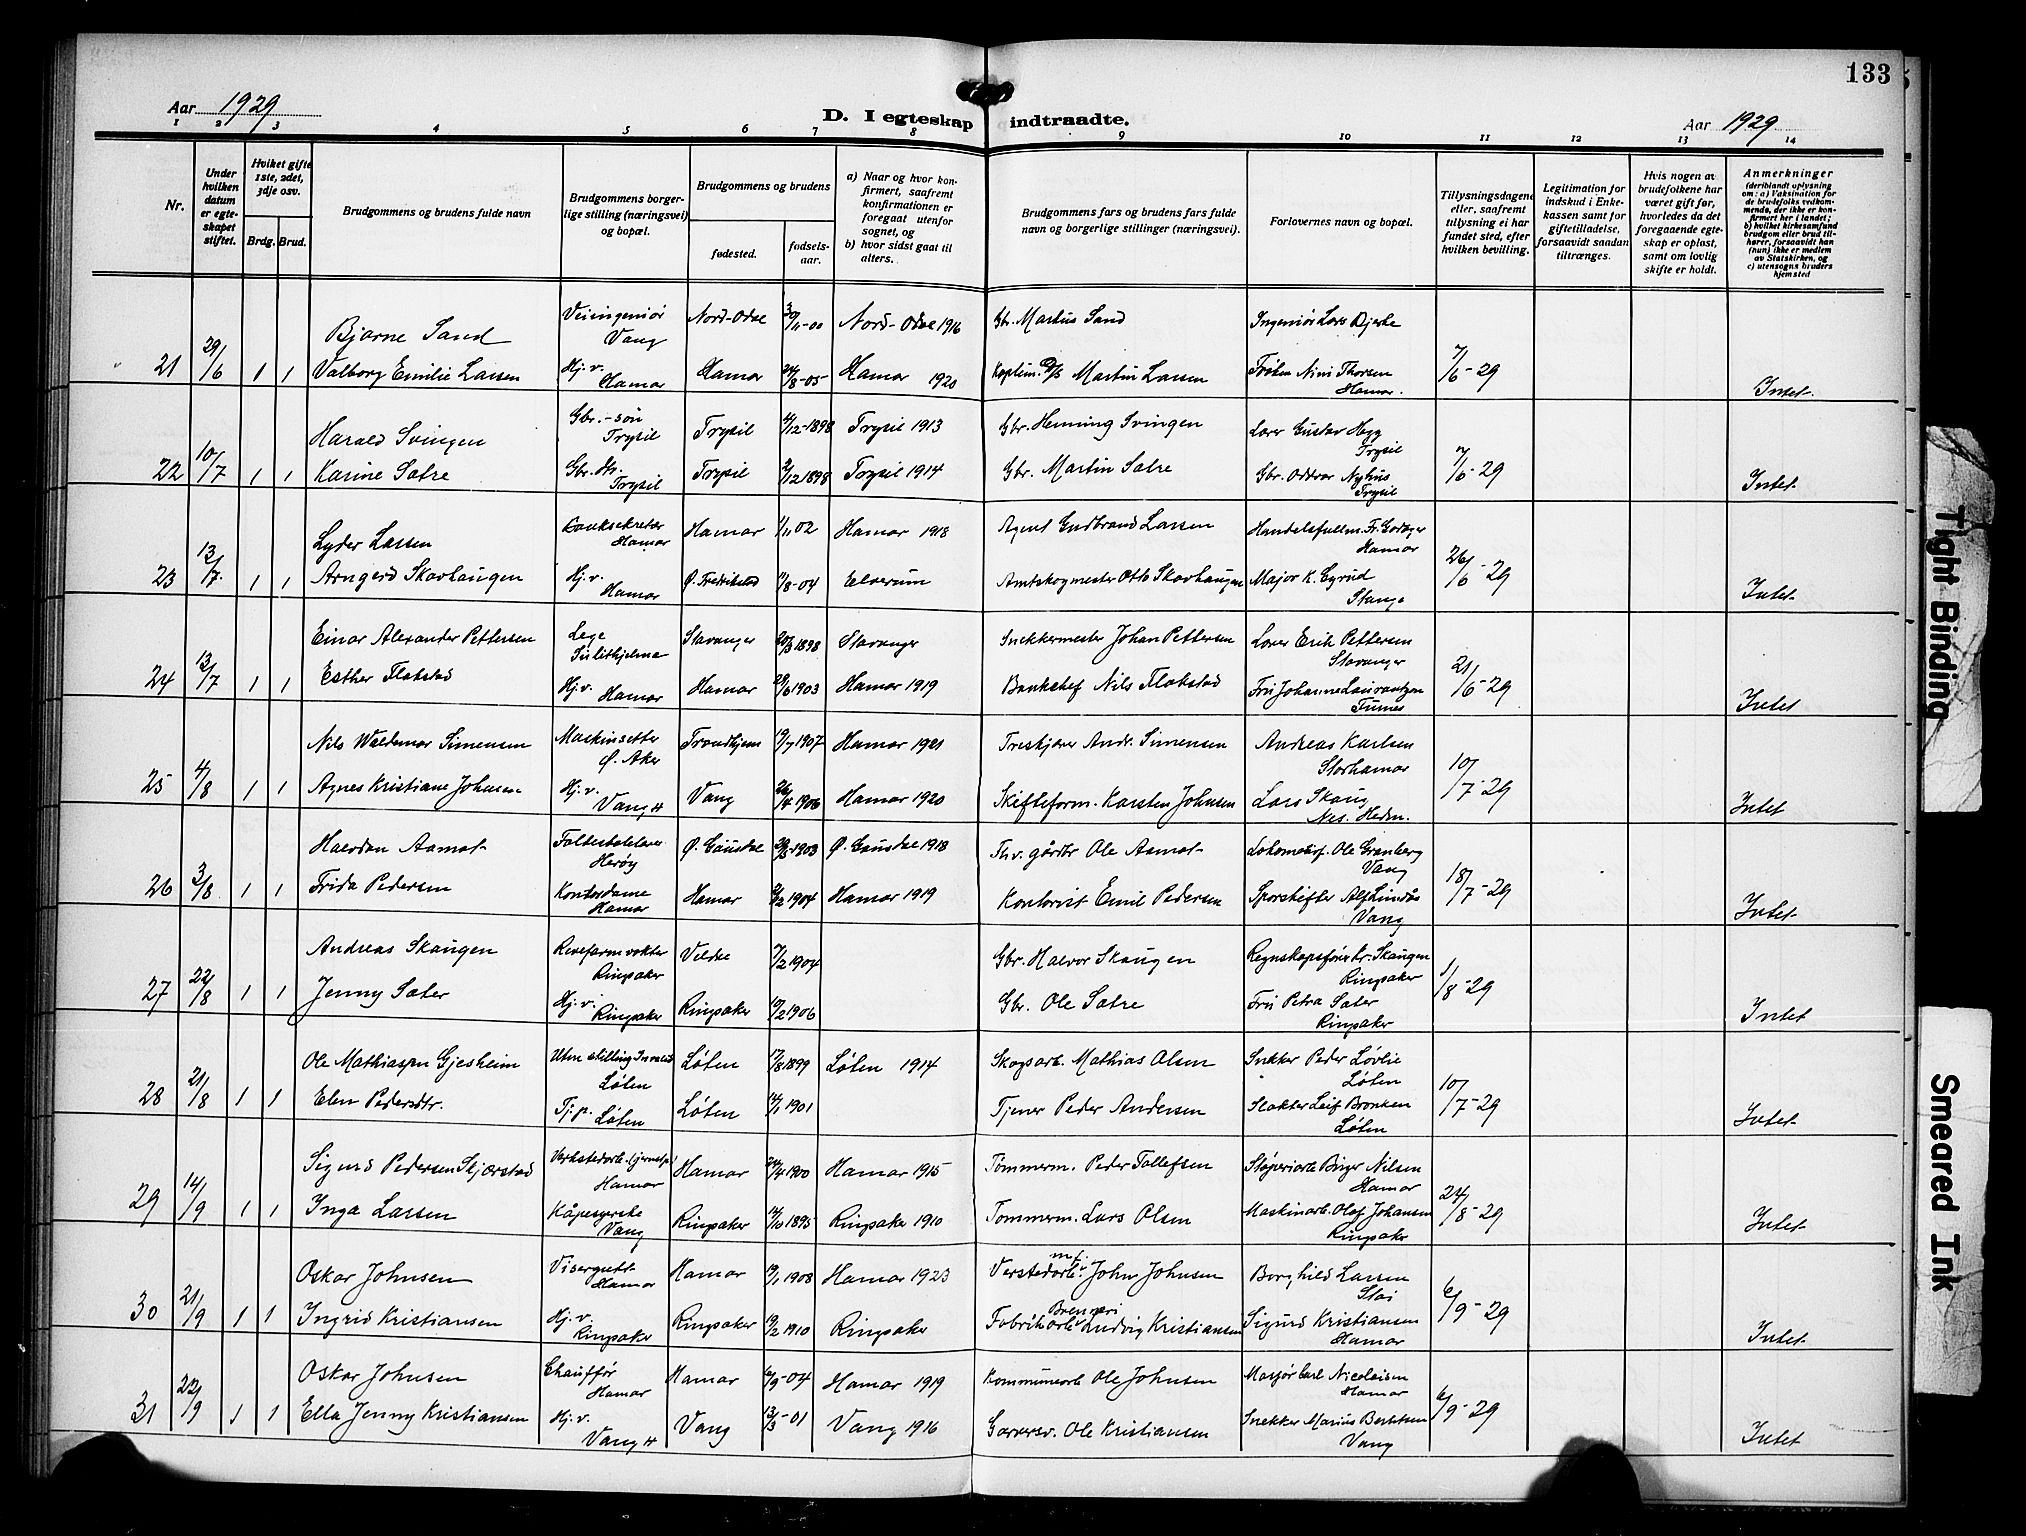 133
Aar 1929
D. I egteskap indtraadte.
Aar 1929
1 2 3 4 5 6 7 8 9 10 11 12 13 14
Nr.
Under hvilken datum er egteskapet stiftet.
Hvilket gifte 1ste, 2det, 3dje osv.
Brdg. Brud.
Brudgommens og brudens fulde navn
Brudgommens borgerlige stilling (næringsvei) og bopæl.
Brudgommens og brudens
fødested.
fødselsaar.
a) Naar og hvor konfirmert, saafremt konfirmationen er foregaat utenfor sognet, og
b) hvor sidst gaat til alters.
Brudgommens fars og brudens fars fulde navn og borgerlige stillinger (næringsvei).
Forlovernes navn og bopæl.
Tillysningsdagene eller, saafremt tillysning ei har fundet sted, efter hvilken bevilling.
Legitimation for indskud i Enkekassen samt for giftetilladelse, forsaavidt saadan tiltrænges.
Hvis nogen av brudefolkene har været gift før, hvorledes da det foregaaende egteskap er opløst, samt om lovlig skifte er holdt.
Anmerkninger
(deriblandt oplysning om: a) Vaksination for de brudefolks vedkommende, der ikke er konfirmert her i landet; b) hvilket kirkesamfund brudgom eller brud tilhører, forsaavidt han (hun) ikke er medlem av Statskirken, og c) utensogns bruders hjemsted
Bjarne Sand Veiingeniør Vang Nord-Odal Nord-Odal 1916 Gbr. Martus Sand Ingeniør Lars Bjerke
21 29/6 1 1 Valborg Emilie Larsen Hj. v. Hamar Hamar 24/8-05 Hamar 1920 Martin Larsen Frøken Nini Thorsen Hamar. 7/6-29 Intet.
Harald Svingen Gbr.-søn Trysil Trysil 4/12-1898 Trysil 1913 Gbr. Henning Svingen Gustav Hegg Trysil
22 10/7 1 1 Karine Sætre Gbr. dtr. Trysil Trysil 2/12 1898 Trysil 1914 Gbr. Martin Sætre Gbr. Oddvar Nyhus Trysil 7/6-29 Intet.
Lyder Larsen Banksekretær Hamar Hamar 1/11 02 Hamar 1918 Agent Gudbrand Larsen Handelsfullm. Fr. Hamar
23 13/7. 1 1 Arngerd Skavhaugen Hj. v. Hamar Ø. Fredrikstad 11/8-04 Elverum Amtskogmester Otto Skavhaugen Major K. Gyrud Stange 26/6-29 Intet.
Einar Alexander Pettersen Læge Sulithjelma Stavanger 20/3 1898 Stavanger Snekkermester Johan Pettersen Erik Pettersen Stavanger
24 13/7 1 1 Esther Flakstad Hj. v. Hamar Hamar 29/6 1903 Hamar 1919 Bankchef Nils Flakstad Fru Johanne Laurantzon Furnes 21/6-29 Intet
Nils Waldemar Simensen Maskinsetter Ø. Aker Trondhjem 19/7 1907 Hamar 1921 Treskjærer Andr. Simensen Andreas Karlsen Storhamar
25 4/8 1 1 Agnes Kristiane Johnsen Hj. v. Vang H Vang 26/4 1906 Hamar 1920 Skifteform. Karsten Johnsen Lars Skaug Nes. Hedm. 10/7-29 Intet
Halvdan Aamot Herøy Ø. Gausdal 1903 Ø. Gausdal 1918 Thv. gårdbr Ole Aamot Lokomotivf. Ole Granberg Vang
26 3/8 1 1 Frida Pedersen Kontordame Hamar Hamar 2/2 1904 Hamar 1919 Kontorist Emil Pedersen Sporskifter Alf Lundås Vang 18/7-29 Intet
Andreas Skaugen Revefarmvokter Ringsaker Veldre 7/2 1904 Gbr. Halvor Skaugen Regnskapsfører Kr. Skaugen Ringsaker
27 22/8 1 1 Jenny Sæter Hj. v. Ringsaker Ringsaker 19/2 1906 Gbr. Ole Sætre Fru Petra Sæter Ringsaker 1/8-29 Intet
Ole Mathiassen Gjesheim Uten stilling Invalid Løten Løten 17/8 1899 Løten 1914 Skogsarb. Mathias Olsen Snekker Peder Løvlie Løten
28 21/8 1 1 Elen Pedersdtr. Tj.p. Løten Løten 14/1 1901 Tjener Peder Andersen Slakter Leif Bronken Løten 10/7-29 Intet
Sigurd Pedersen Skjærstad Hamar Hamar 24/4 1900 Hamar 1915 Tømmerm. Peder Tollefsen Støperiarb Birger Nilsen Hamar
29 14/9 1 1 Inga Larsen Kåpesyerske Vang Ringsaker 14/10 1895 Ringsaker 1910 Tømmerm. Lars Olsen Maskinarb. Olaf Johansen Ringsaker 24/8-29 Intet
Oskar Johnsen Visergutt Hamar Hamar 19/1 1908 Hamar 1923 Verstedarb. John Johnsen Borghild Larsen Stai
30 21/9 1 1 Ingrid Kristiansen Hj. v. Ringsaker Ringsaker 19/2 1910 Ringsaker Fabrikarb. Brenneri Ludvig Kristiansen Sigurd Kristiansen Hamar 6/9-29 Intet
Oskar Johnsen Chauffør Hamar Hamar 6/9-04 Hamar 1919 Kommunearb Ole Johnsen Carl Nicolaisen Hamar
31 22/9 1 1 Ella Jenny Kristiansen Hj. v. Vang H Vang 13/3-01 Vang 1916 Garversv. Ole Kristiansen Snekker Marius Berntsen Vang 6/9-29 Intet
Tight Binding
Smeared Ink